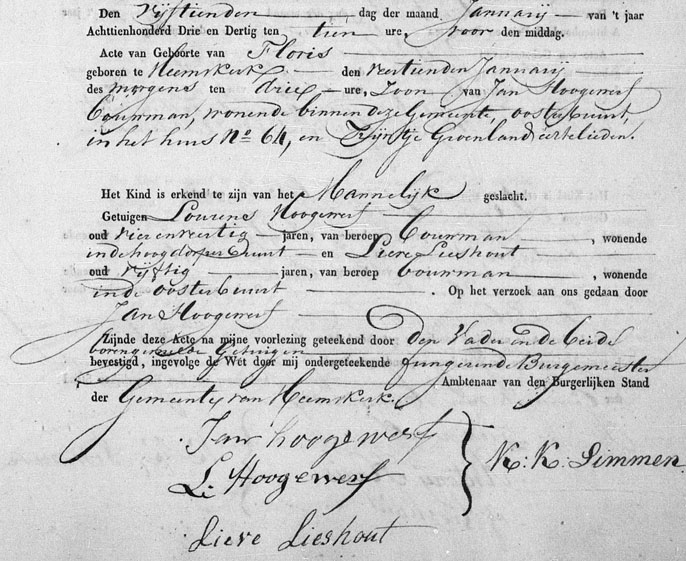 Den Vijftienden dag der maand Januarij van 't jaar
Achttienhonderd Drie en Dertig ten tien ure, voor den middag.
Acte van Geboorte van Floris
geboren te Heemskerk den Veertienden Januarij
des morgens ten drie ure, Zoon van Jan Hoogewerf
bouwman, wonende binnen deze Gemeente, oosterbuurt,
in het huis No 64, en Trijntje Groenland echtelieden.
Het Kind is erkend te zijn van het Mannelijk geslacht.
Getuigen Lourens Hoogewerf
oud vierenveertig jaren, van beroep bouwman, wonende
in de hoogdorper Buurt en Lieve Lieshout
oud vijftig jaren, van beroep bouwman, wonende
in de oosterbuurt. Op het verzoek aan ons gedaan door
Jan Hoogewerf
Zijnde deze Acte na mijne voorlezing geteekend door den Vader en de beide
bovengemelde Getuigen
bevestigd, ingevolge de Wet door mij ondergeteekende fungerende Burgemeester
Ambtenaar van den Burgerlijken Stand
der Gemeente van Heemskerk.
Jan hoogewerf
L: Hoogewerf
K: K: Simmen
Lieve Lieshout